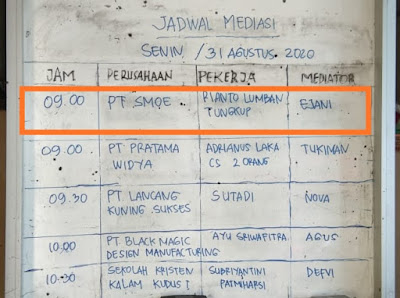 JADWAL MEDIASI
SENIN / 31 AGUSTUS 2020
JAM PERUSAHAAN PEKERJA MEDIATOR
09.00 PT SMOE RIANTO LUMBAN EJANI
TUNGKUP
09.00 PT PRATAMA ADRIANUS LAKA TUKIMAN
WIDYA CS 2 ORANG
09.30 PT LANCANG SUTADI NOVA
KUNING SUKSES
10.00 PT. BLACK MAGIC AYU SRIWAFITRA AGUS
DESIGN MANUFACTURING
10.30 SEKOLAH KRISTEN SUDRIYANTINI DEFVI
KALAM KUDUS I PATMIHARSI